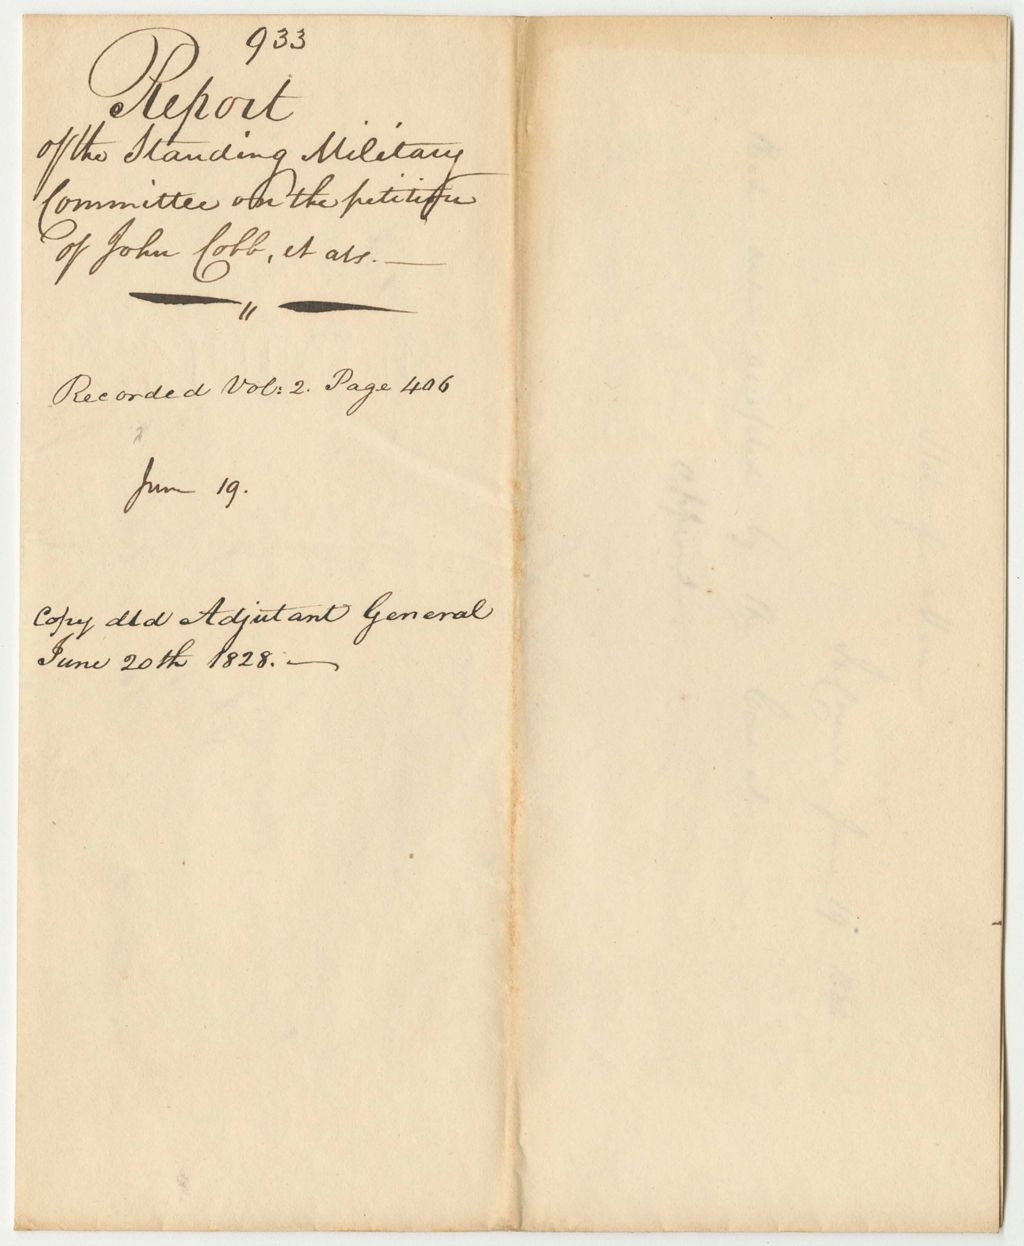 933
Report
of the Standing Military
Committee on the petition
of John Cobb, et als. —
"
Recorded Vol: 2. Page 406
June 19.
Copy dld Adjutant General
June 20th 1828. —